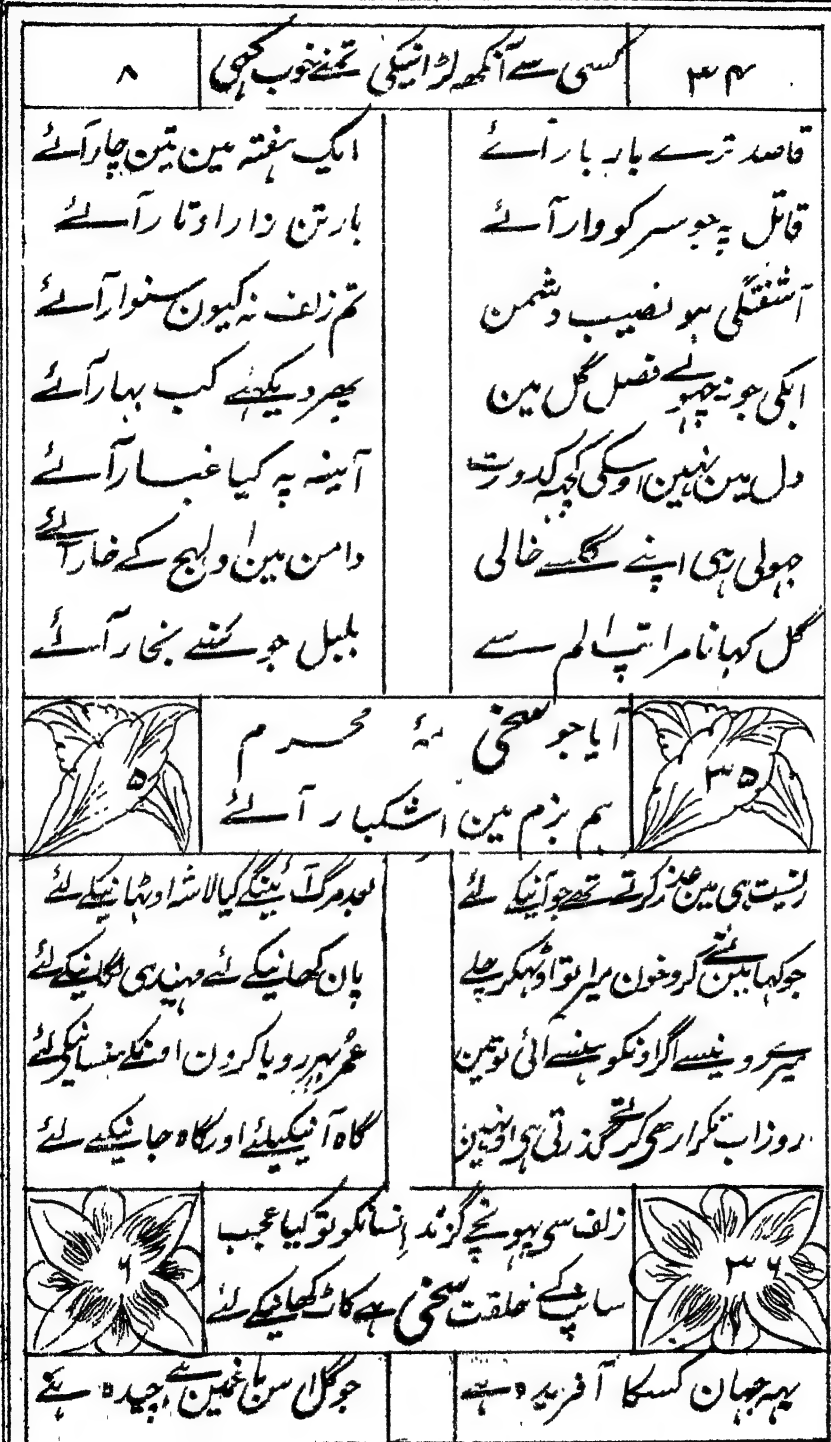 ۳۴ کسی سے آنکھ لڑانیکی تمنے خوب کہی ۸
قاصد ترے بار بار آئے ایک ہفتہ مین تین چار آئے
قاتل پہ جو سر کو وار آئے بار تن زار اوتار آئے
آشفتگی ہو نصیب دشمن تم زلف نہ کیون سنوار آئے
ابکی جو نہ چہوٹے فصل گل مین پھر دیکھئے کب بہار آئے
دل مین نہین اوسکی کچہہ کدورت آئینہ پہ کیا غبار آئے
جہولی رہی اپنے گل سے خالی دامن مین اولہج کے خار آئے
گل کہانا مرا تپ الم سے بلبل جو سنے بخار آئے
۳۵ آیا جو سخی مہ محرم ۵
ہم بزم مین اشکبار آئے
زیست ہی مین عذر کرتے تھے جو آنیکے لئے بعد مرگ آئینگے کیا لاشہ اوٹھانیکے لئے
جو کہا مینے کرو خون میرا تو اوٹھکر چلے پان کھانیکے لئے مہندی لگانیکے لئے
میرے رونیسے اگر اونکو ہنسے آئی تو مین عمر بہر رویا کرون اونکے ہنسانیکے لئے
روز اب تکرار ہی کرتے گذرتی ہی اونہین گاہ آنیکیلئے اور گاہ جانیکے لئے
۳۶ زلف سی پہونچے گزند انسانکو تو کیا عجب ۶
سانپ کے خلقت سخی ہے کاٹ کھانیکے لئے
یہہ جہان کسکا آفریدہ ہے جو گل اس باغمین ہے چیدہ ہے